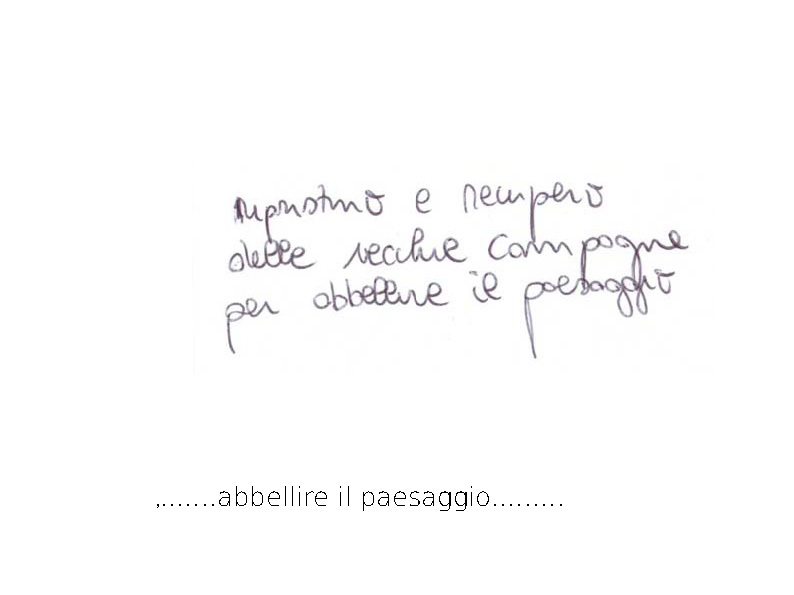 ripristino e recupero
delle vecchie campagne
per abbellire il paesaggio
,.......abbellire il paesaggio.........